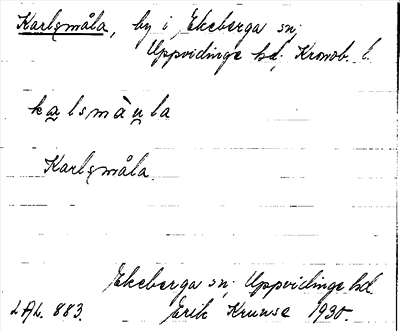 Karlsmåla, by i Ekeberga sn;
Uppvidinge hd; Kronob. l.
ka̲lsmàu̲la
Karlsmåla
Ekeberga sn; Uppvidinge hd.
LAL. 883. Erik Kruuse 1930.